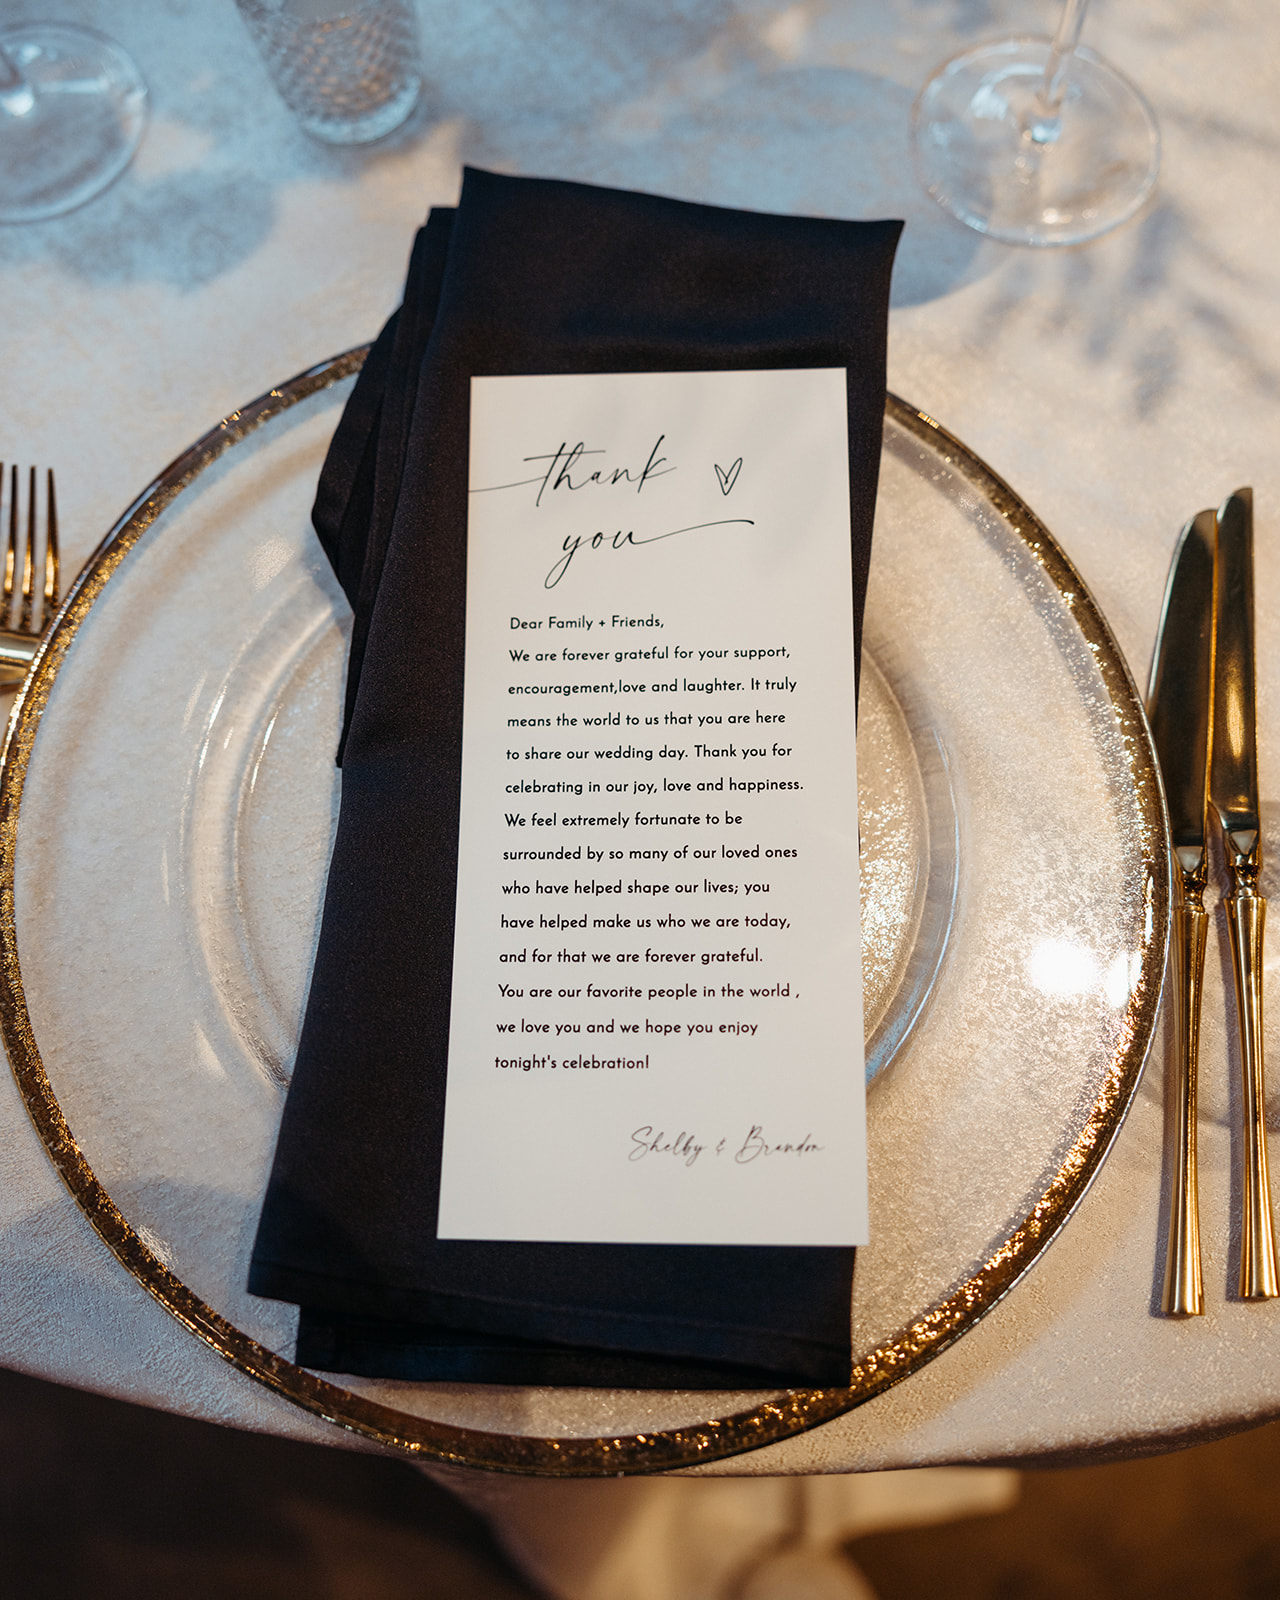 thank
you
Dear Family + Friends,
We are forever grateful for your support,
encouragement,love and laughter. It truly
means the world to us that you are here
to share our wedding day. Thank you for
celebrating in our joy, love and happiness.
We feel extremely fortunate to be
surrounded by so many of our loved ones
who have helped shape our lives; you
have helped make us who we are today,
and for that we are forever grateful.
You are our favorite people in the world ,
we love you and we hope you enjoy
tonight's celebration!
Shelby & Brandon